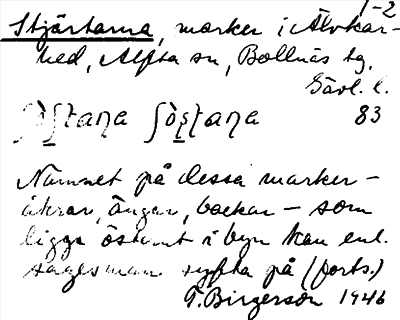 1-2
Stjärtarna, marker i Älvkar-
hed, Alfta sn, Bollnäs tg,
Gävl. l.
83
Namnet på dessa marker –
åkrar, ängar, backar – som
ligga östant i byn kan enl.
sagesman syfta på (forts.)
T. Birgerson 1946